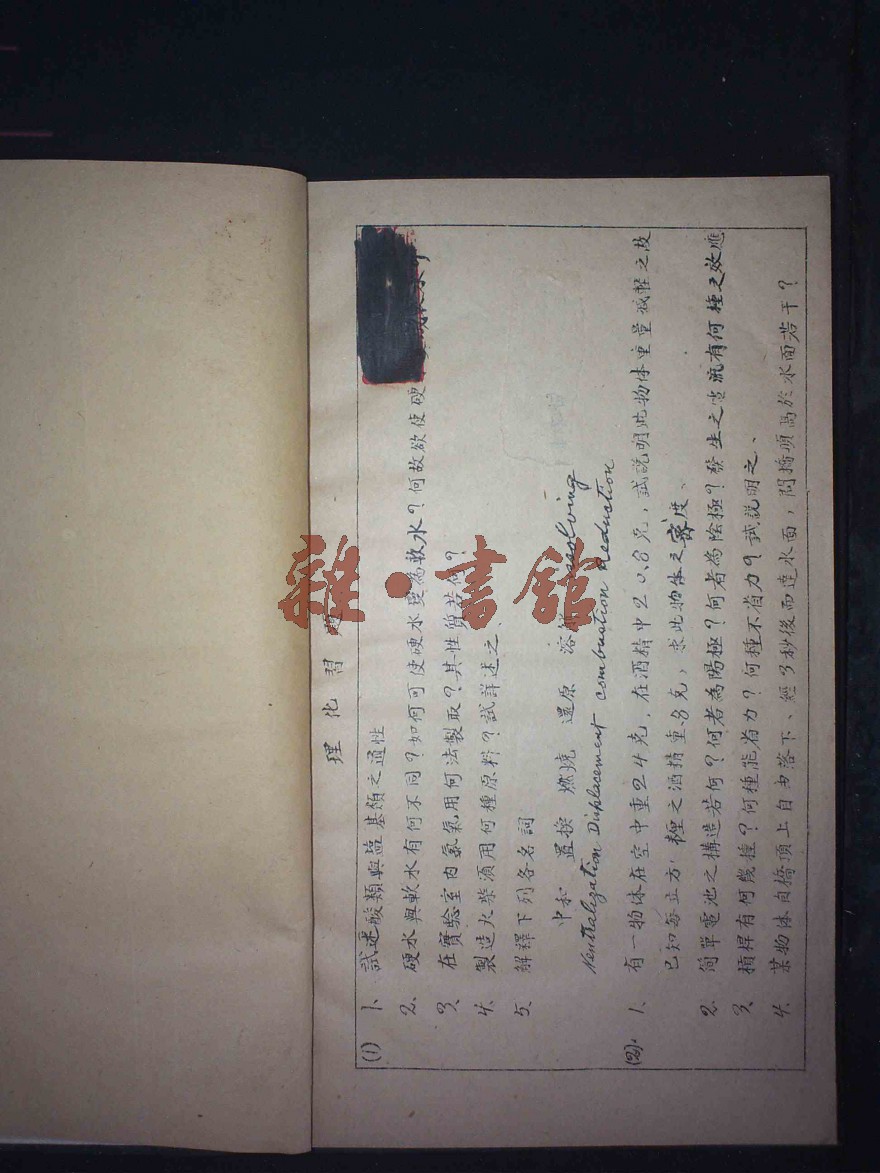 理化習題
(1) 1、試述酸類與塩基類之通性
2、硬水與軟水有何不同？如何可使硬水變為軟水？何故欲使硬
3、在實驗室內氯氣用何法製取？其性質若何？
4、製造火柴須用何種原料？試詳述之、
5、解釋下列各名詞
中和 置換 燃燒 還原 溶
Neutralization Displacement combustion Reduction
(2). 1、有一物体在空中重24克，在酒精中20.8克，試說明此物体重量減輕之故
已知每立方糎之酒精重.8克，求此物体之密度、
2、簡單電池之構造若何？何者為陽極？何者為陰極？發生之電流有何種之效應
3、槓桿有何幾種？何種能省力？何種不省力？試說明之、
4、某物体自橋頂上自由落下、經3秒後而達水面，問橋頂高於水面若干？
雜·書館